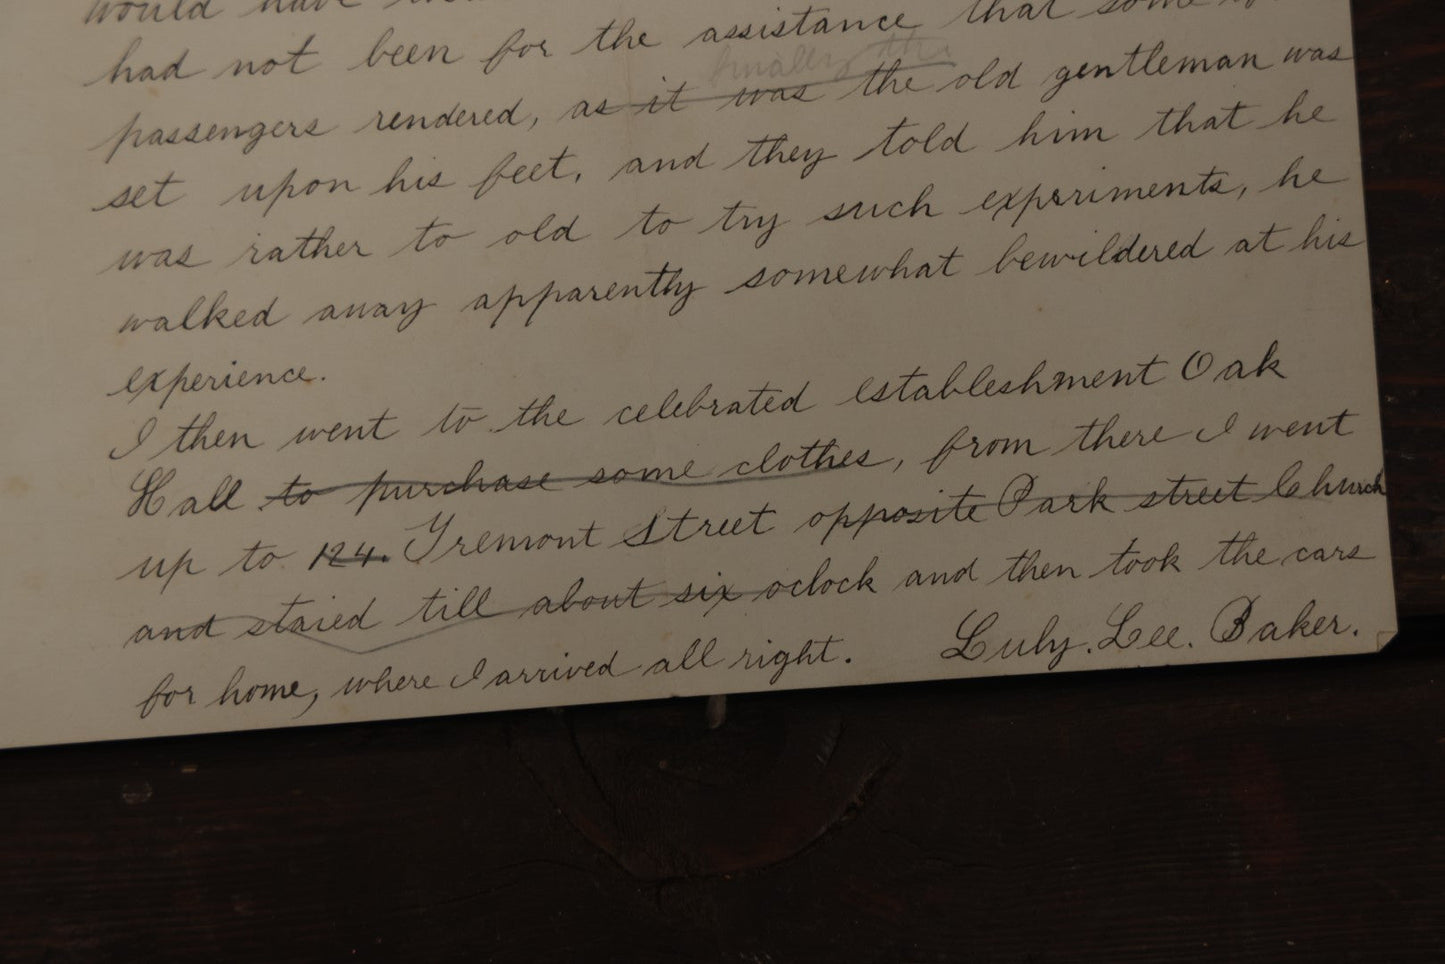 would have
had not been for the assistance that some
finally the
passengers rendered, as it was the old gentleman was
set upon his feet, and they told him that he
was rather to old to try such experiments, he
walked away apparently somewhat bewildered at his
experience.
I then went to the celebrated estableshment Oak
Hall to purchase some clothes, from there I went
up to 124. Tremont Street opposite Park street Church
and staied till about six oclock and then took the cars
for home, where I arrived all right. Luly. Lee. Baker.